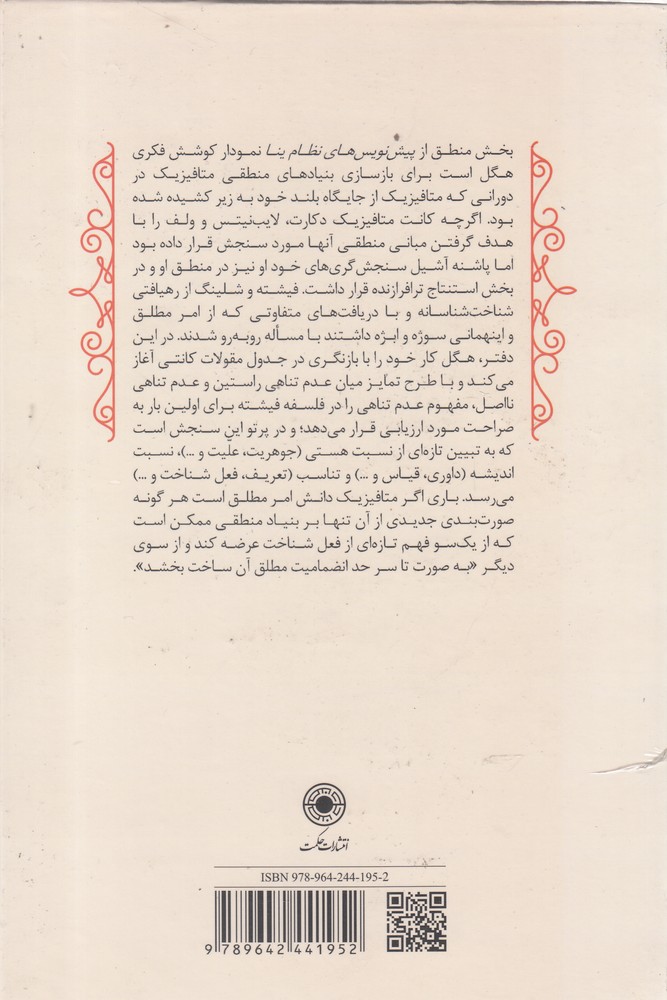 بخش منطق از پیش‌نویس‌های نظام ینا نمودار کوشش فکری
هگل است برای بازسازی بنیادهای منطقی متافیزیک در
دورانی که متافیزیک از جایگاه بلند خود به زیر کشیده شده
بود. اگرچه کانت متافیزیک دکارت، لایب‌نیتس و ولف را با
هدف گرفتن مبانی منطقی آنها مورد سنجش قرار داده بود
اما پاشنه آشیل سنجش‌گری‌های خود او نیز در منطق او و در
بخش استنتاج ترافرازنده قرار داشت. فیشته و شلینگ از رهیافتی
شناخت‌شناسانه و با دریافت‌های متفاوتی که از امر مطلق
و اینهمانی سوژه و ابژه داشتند با مسأله روبه‌رو شدند. در این
دفتر، هگل کار خود را با بازنگری در جدول مقولات کانتی آغاز
می‌کند و با طرح تمایز میان عدم تناهی راستین و عدم تناهی
نااصل، مفهوم عدم تناهی را در فلسفه فیشته برای اولین بار به
صراحت مورد ارزیابی قرار می‌دهد؛ و در پرتو این سنجش است
که به تبیین تازه‌ای از نسبت هستی (جوهریت، علّیت و ...)، نسبت
اندیشه (داوری، قیاس و ...) و تناسب (تعریف، فعل شناخت و ...)
می‌رسد. باری اگر متافیزیک دانش امر مطلق است هر گونه
صورت‌بندی جدیدی از آن تنها بر بنیاد منطقی ممکن است
که از یک‌سو فهم تازه‌ای از فعل شناخت عرضه کند و از سوی
دیگر «به صورت تا سر حد انضمامیت مطلق آن ساخت بخشد».
انتشارات حکمت
ISBN 978-964-244-195-2
9 789642 441952